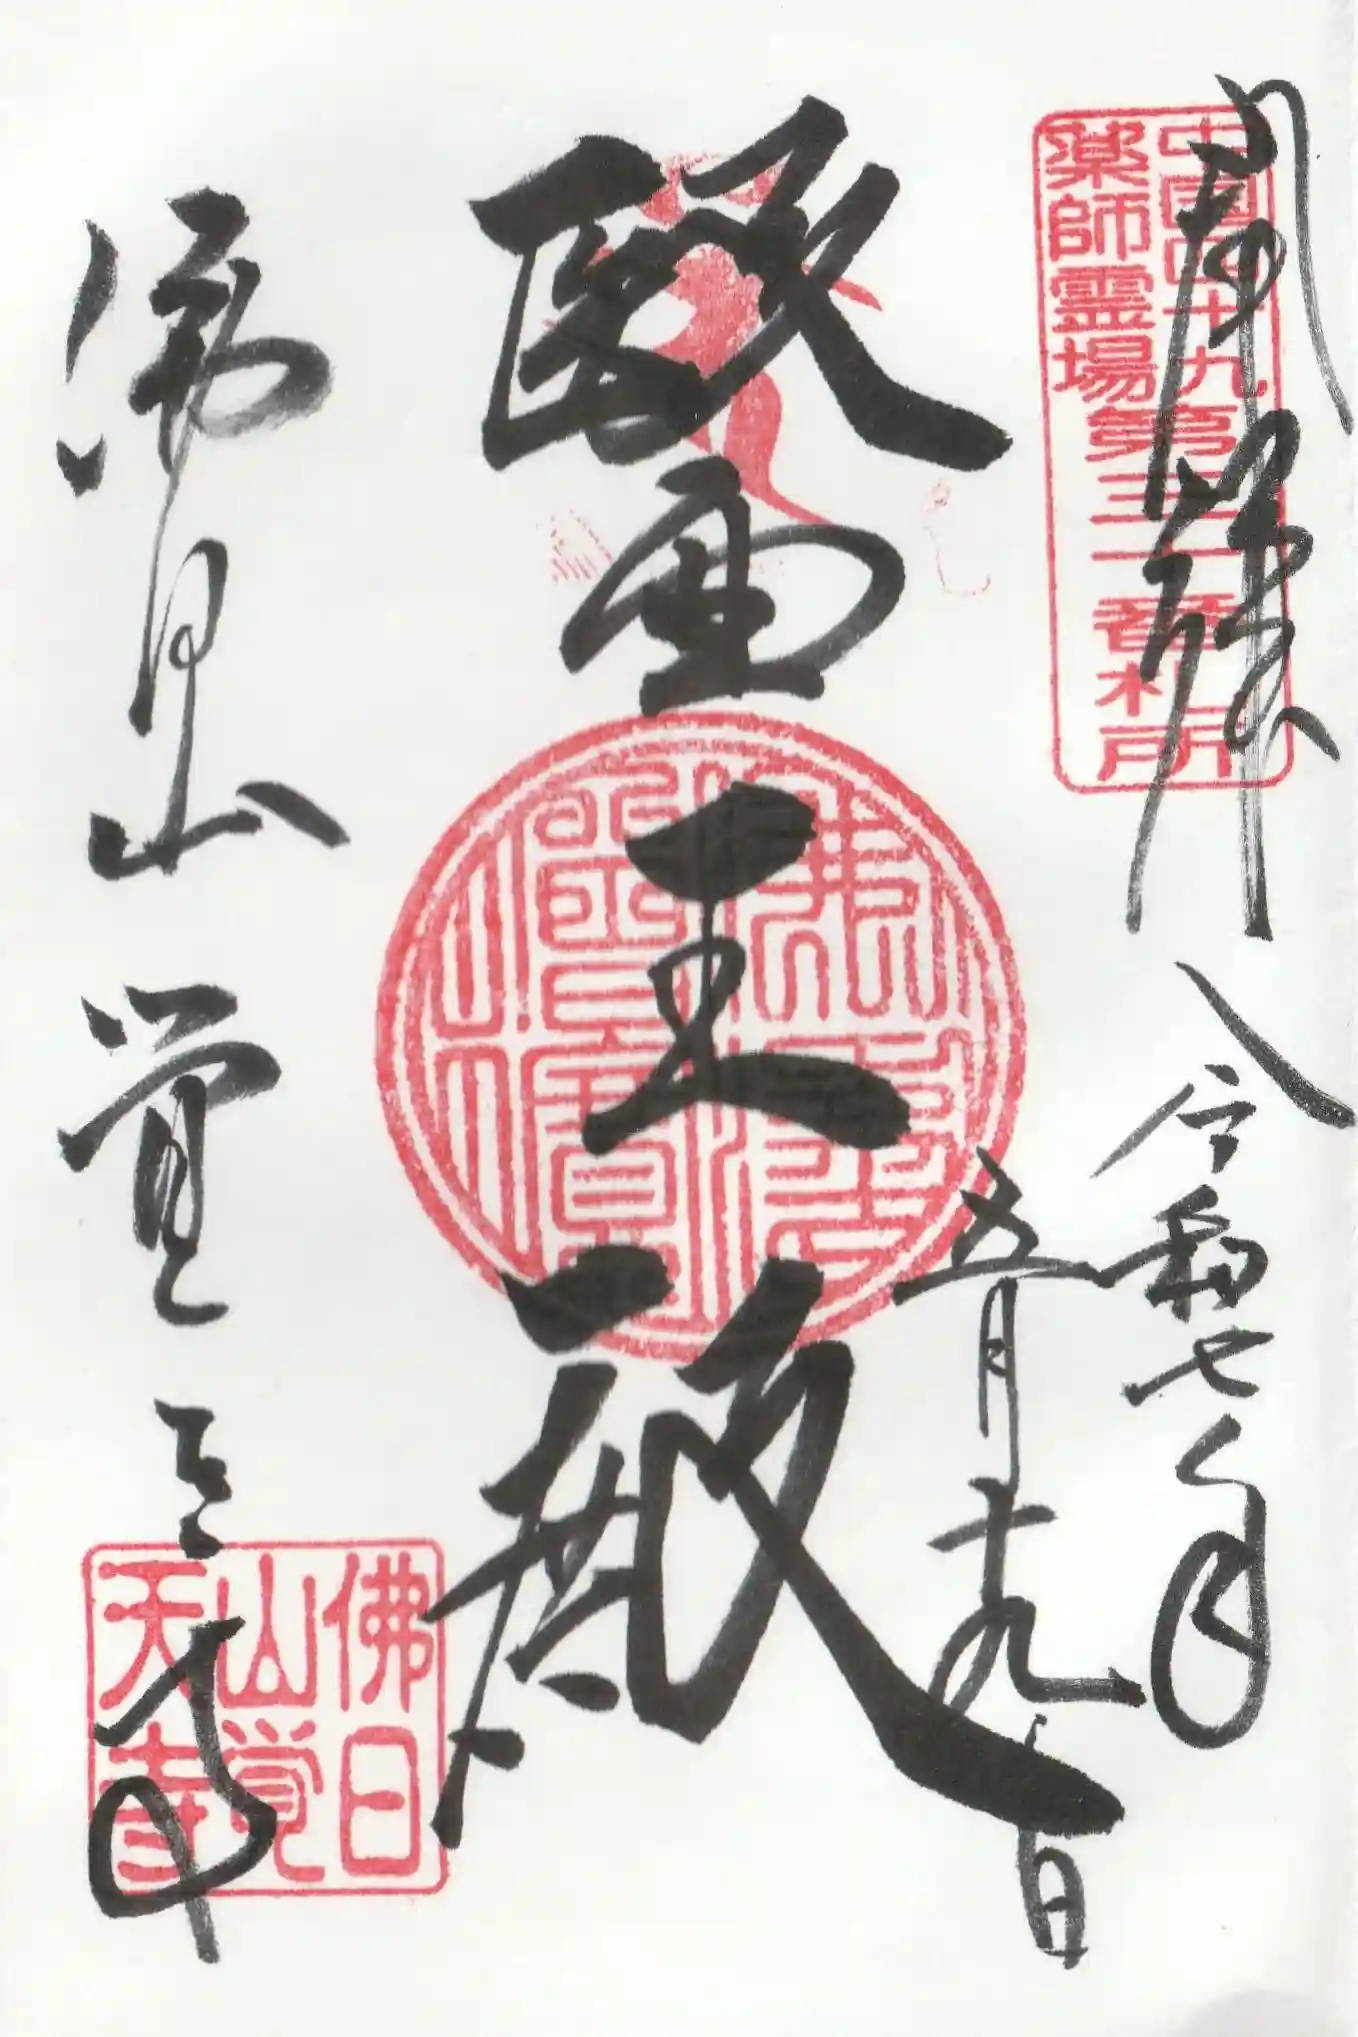 中国四十九
薬師霊場第三一番札所
令和七年
五月十九日
醫王殿
佛法僧寶
佛日山 覚天寺
佛日
山覚
天寺